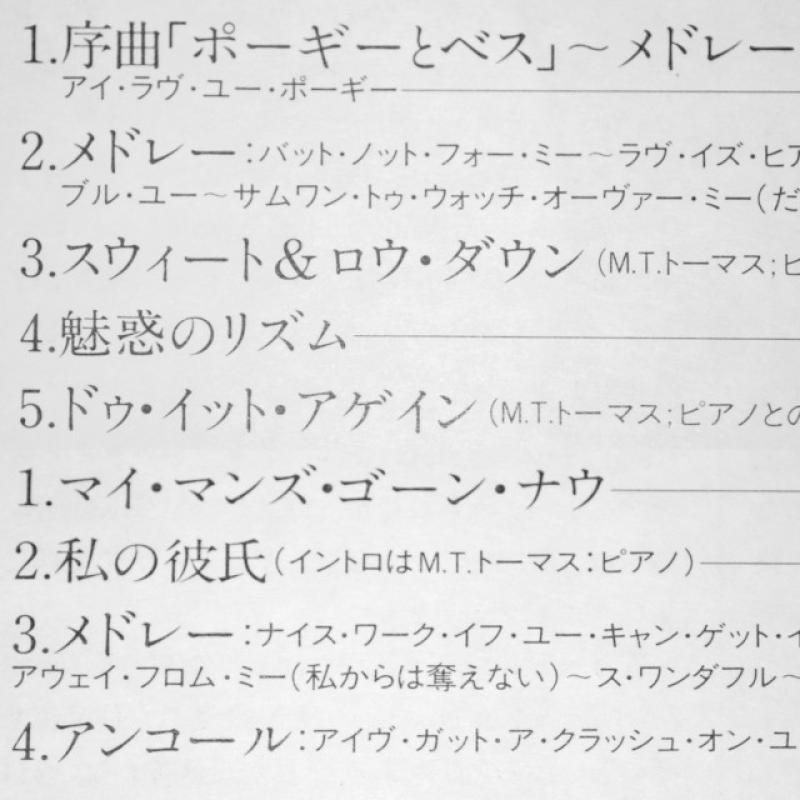 1.序曲「ポーギーとベス」～メドレー
アイ・ラヴ・ユー・ポーギー
2.メドレー：バット・ノット・フォー・ミー～ラヴ・イズ・ヒア
ブル・ユー～サムワン・トゥ・ウォッチ・オーヴァー・ミー(だ
3.スウィート&ロウ・ダウン(M.T.トーマス;ピ
4.魅惑のリズム
5.ドゥ・イット・アゲイン(M.T.トーマス;ピアノとの
1.マイ・マンズ・ゴーン・ナウ
2.私の彼氏(イントロはM.T.トーマス:ピアノ)
3.メドレー：ナイス・ワーク・イフ・ユー・キャン・ゲット・イ
アウェイ・フロム・ミー(私からは奪えない)～ス・ワンダフル～
4.アンコール：アイヴ・ガット・ア・クラッシュ・オン・ユ